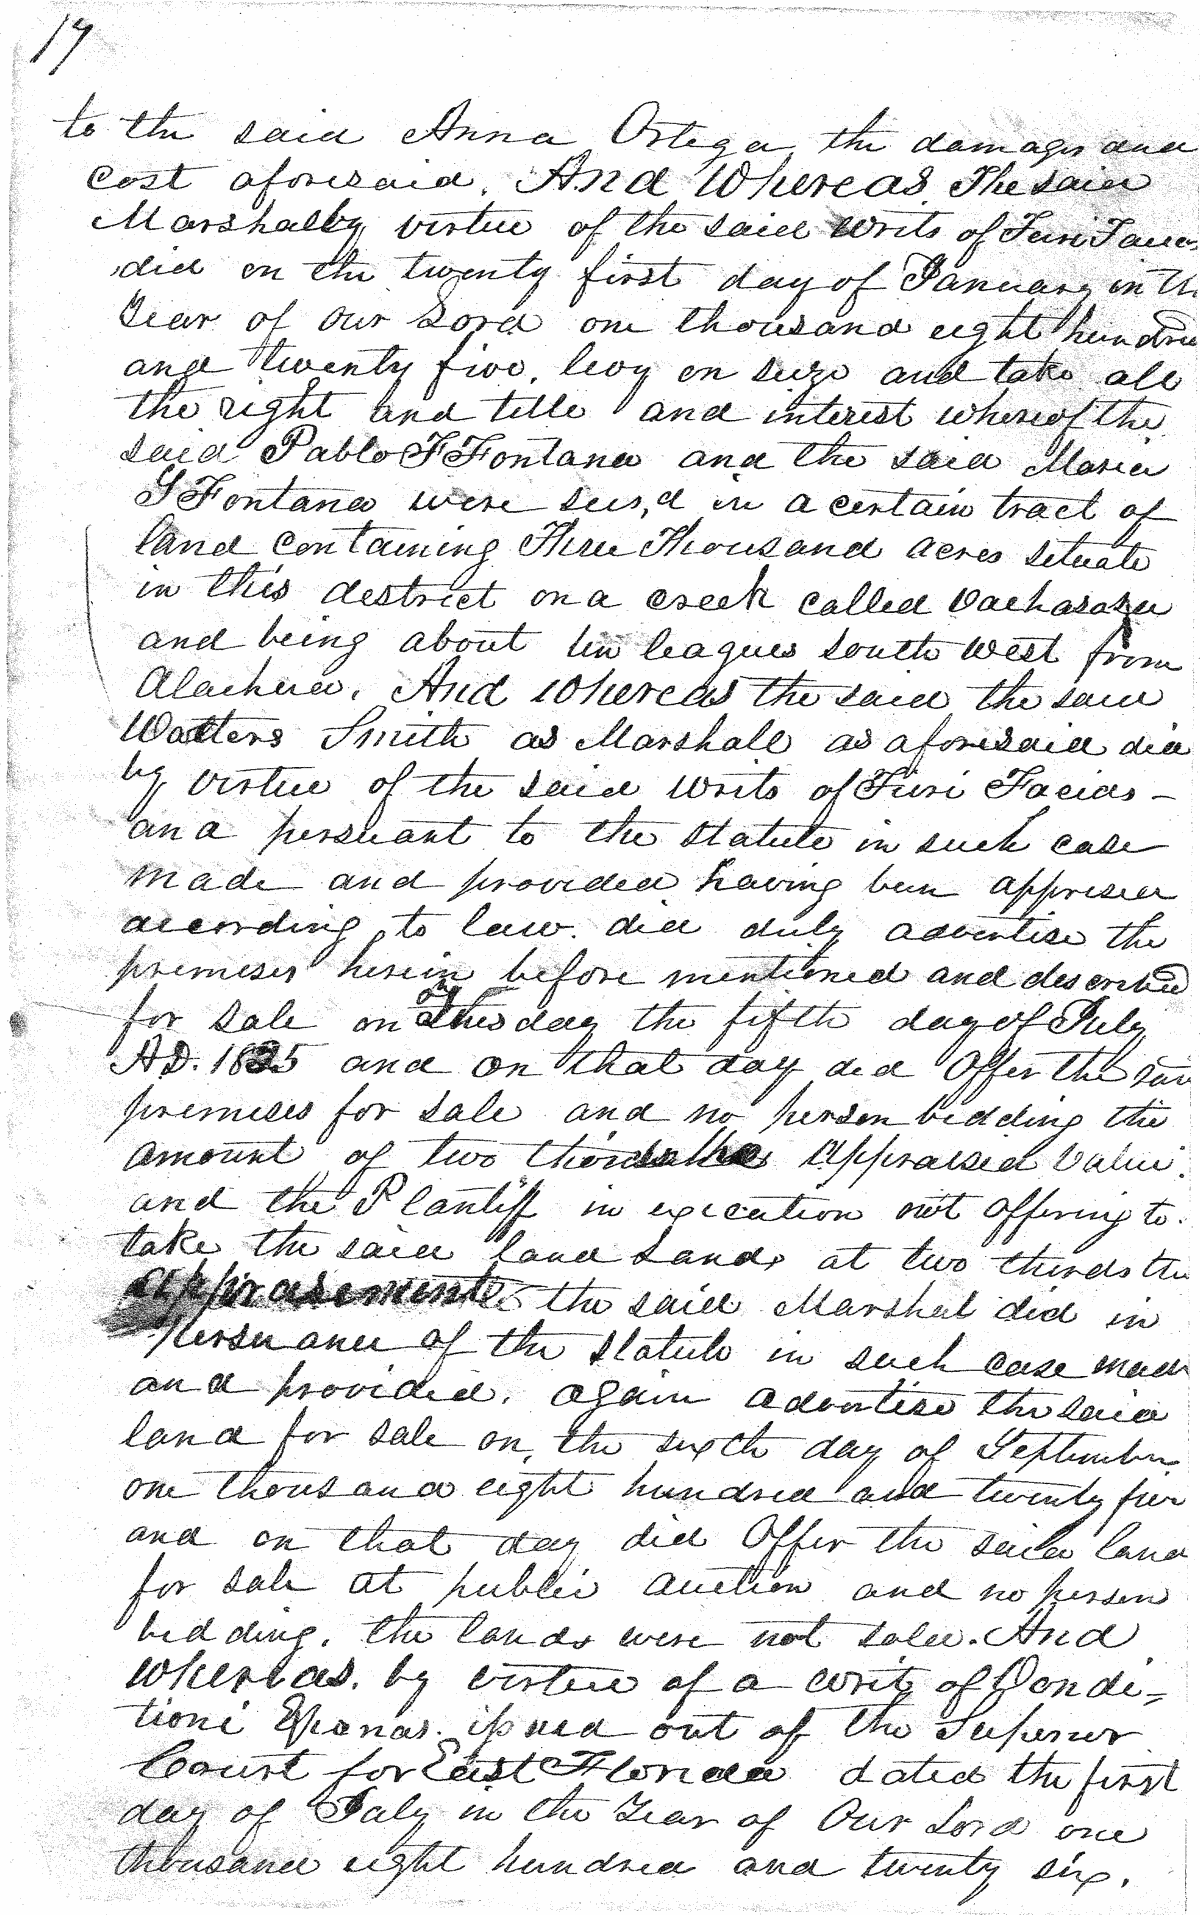 17
to the said Anna Ortega the damages and
cost aforesaid. And Whereas. The said
Marshal by virtue of the said writs of Fieri Facias
did on the twenty first day of January in the
Year of Our Lord one thousand eight hundred
and twenty five, levy on seize and take all
the right and title and interest whereof the
said Pablo F Fontane and the said Maria
G Fontane were seis,d in a certain tract of
land containing Three Thousand acres situate
in this destrict on a creek called
and being about ten leagues south west from
Alachua. And Whereas the said the said
Watters Smith as Marshall as aforesaid did
by virtue of the said writs of Fieri Facias –
and persuant to the statute in such case
made and provided having been apprised
according to law. did duly advertise the
premeses herein before mentioned and described
for sale on day the fifth day of July
AD. 1825 and on that day did Offer the said
premises for sale and no person bidding the
amount of two thirds the Appraised Value.
and the Plantiff in execution not offering to
take the said land Lands at two thirds the
appraisement the said Marshal did in
persuance of the statute in such case made
and provided. again advertise the said
land for sale on, the sixth day of September
one thousand eight hundred and twenty five
and on that day did Offer the said land
for sale at public auction and no person
bidding. the lands were not sold. And
whereas. by virtue of a writ of Vendi-
tioni Exponas. issued out of the Superior
Court for East Florida dated the first
day of July in the Year of Our Lord one
thousand eight hundred and twenty six.